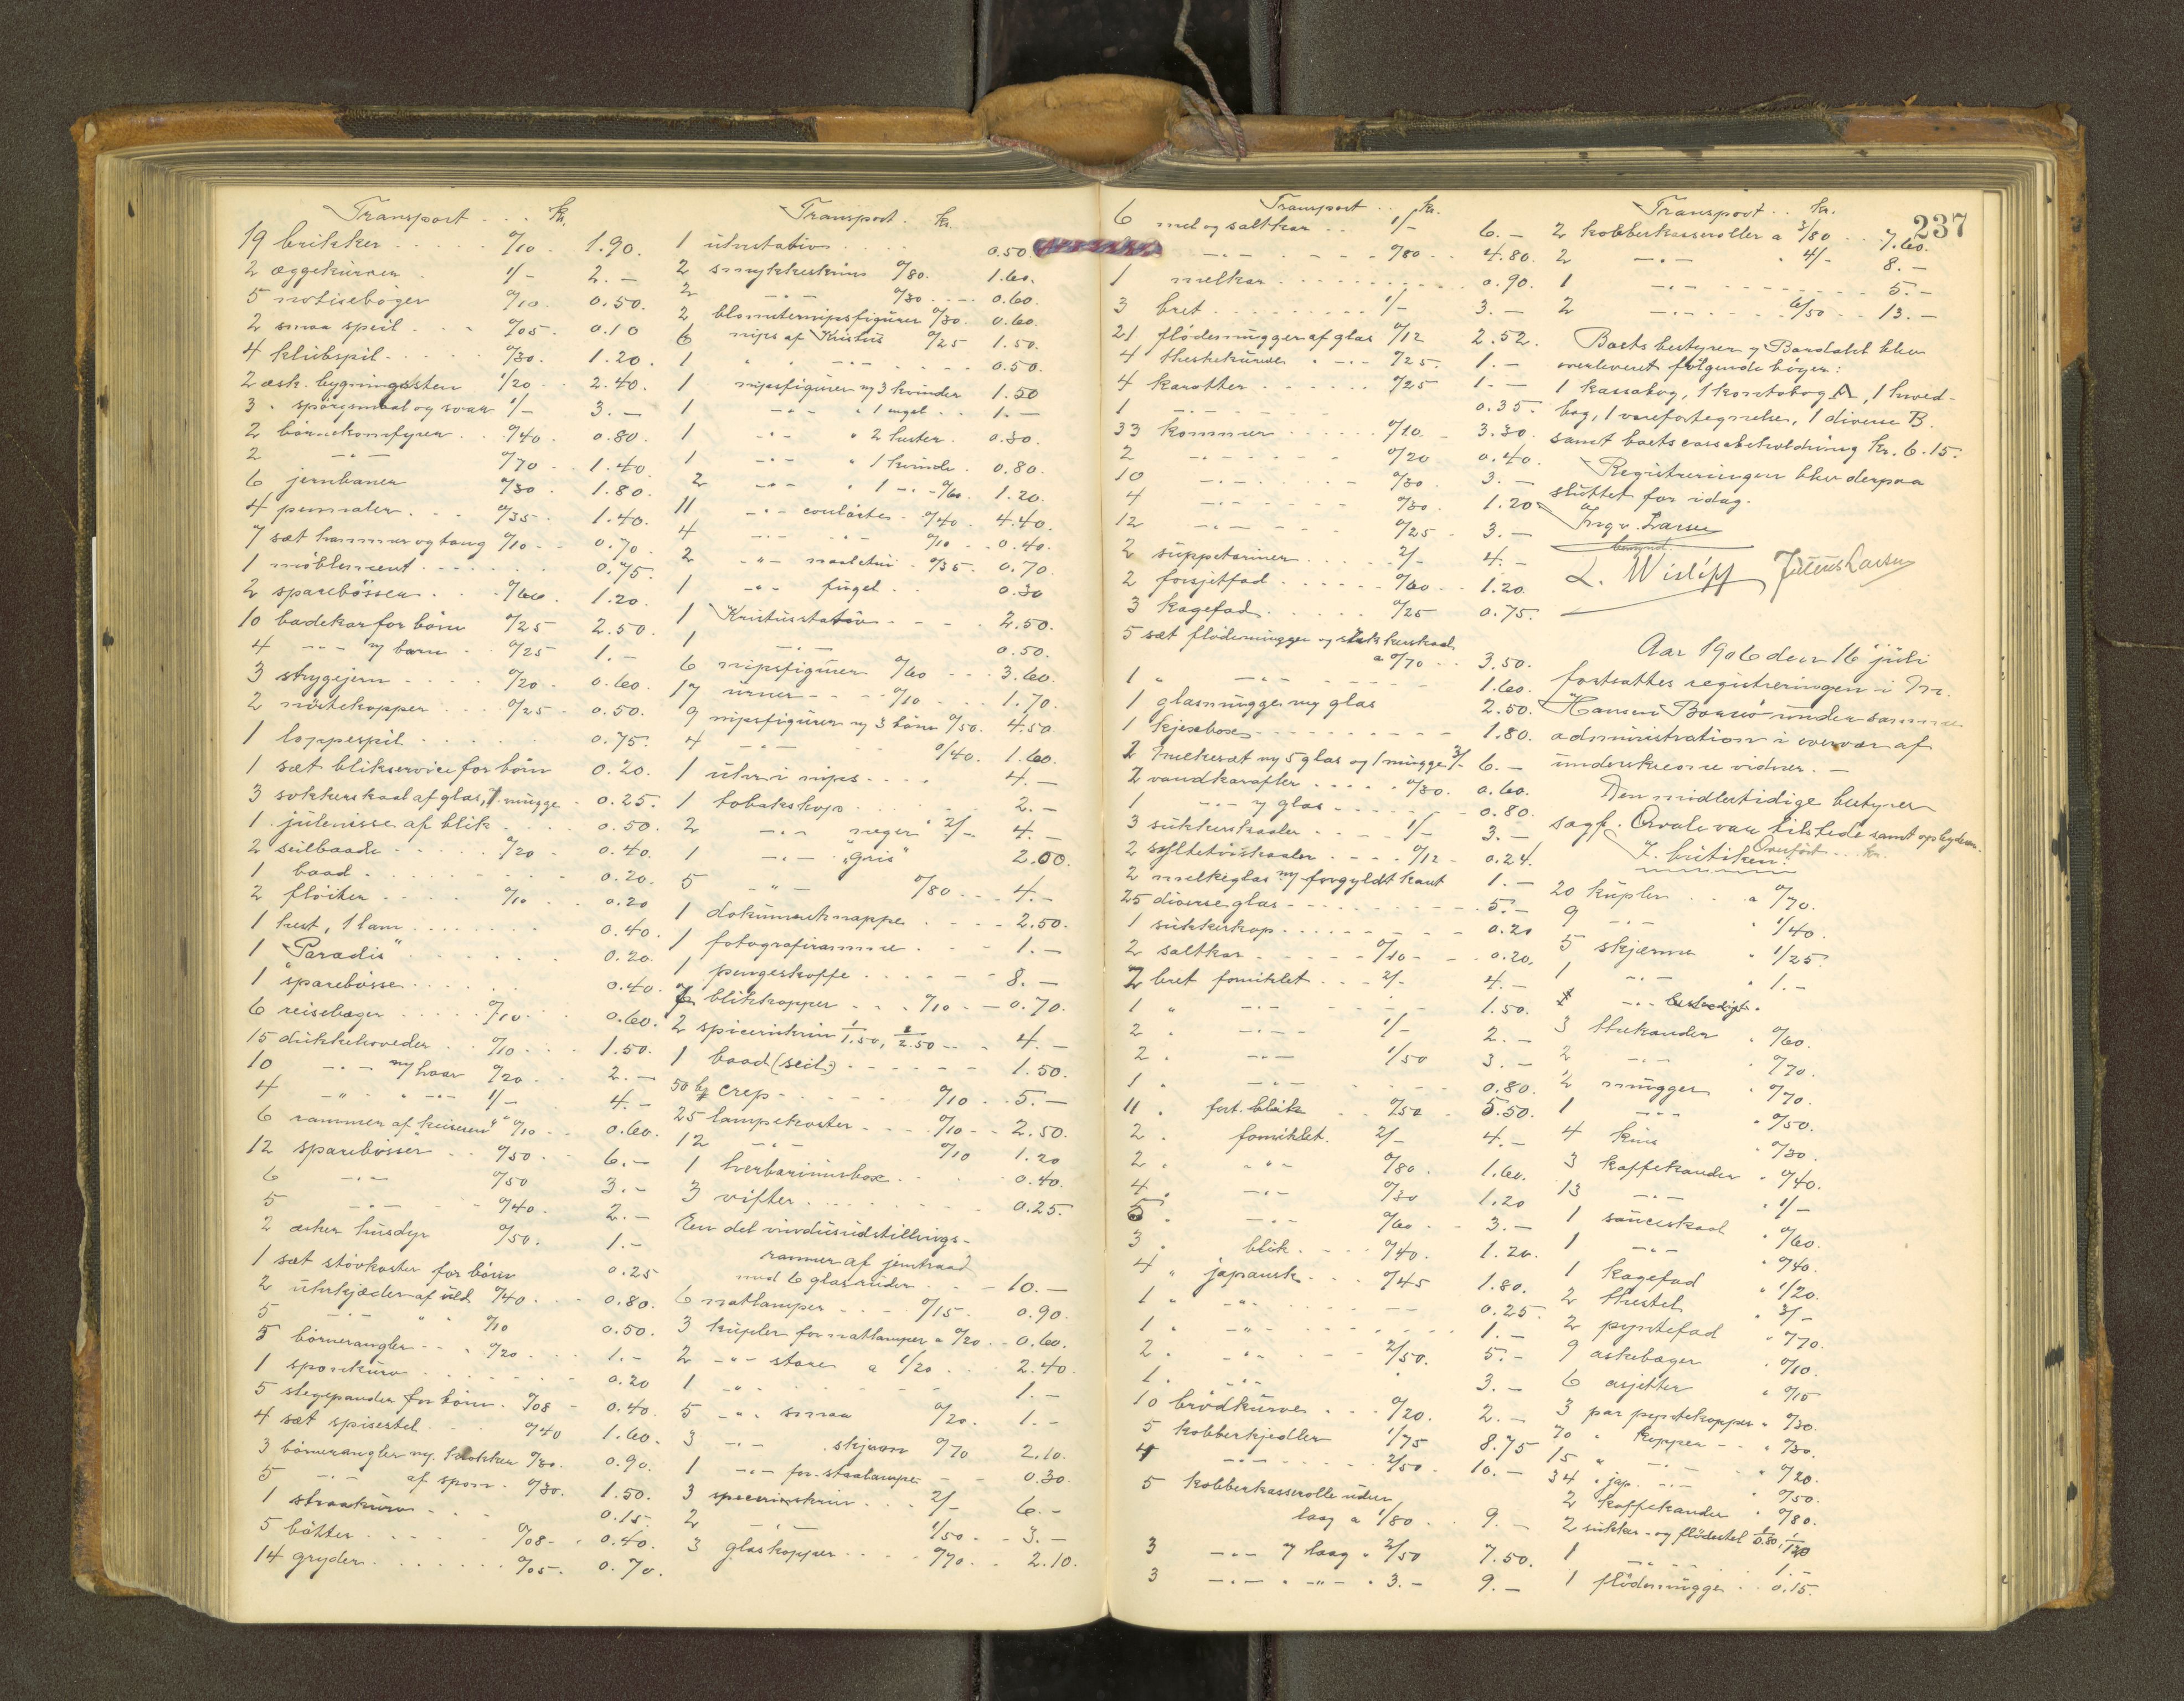 Transport . . . kr.
19 brikker . . . . . 0/10 . 1.90.
2 æggekurver . 1/- 2.-
5 notisebøger 0/10. 0.50.
2 smaa speil . . . 0/05. 0.10
4 klubspil . . . . 0/30. 1.20.
2 æsk. bygningssten 1/20 . . 2.40.
3 " spørgsmaal og svar 1/- 3.-
2 børnekomfyrer . . 0/40. 0.80.
2 -"- 0/70 . . 1.40.
6 jernbaner 0/30 . 1.80.
4 pennaler . . . 0/35 . 1.40.
7 sæt hammer og tang 0/10 - - 0.70.
1 møblement . . . . . . 0.75.
2 sparebøsser . . 0/60. 1.20.
10 badekar for børn 0/25 2.50.
4 -"- m/ barn . 0/25 1.-
3 strygejern . . . . 0/20 . 0.60.
2 . . . 0/25 . 0.50.
1 loppespil . . . . . . 0.75.
1 sæt blikservice for børn 0.20.
3 sukkerskaal af glas, 1 mugge . 0.25.
1 julenisse af blik . . . . 0.50.
2 seilbaade . . . . . 0/20 . 0.40.
1 baad . . . . . . . . . 0.20.
2 fløiter . . . . 0/10 . . 0.20
1 hest, 1 lam . . . . . . . 0.40.
1 "Paradis" . . . . . . 0.20.
1 sparebøsse . . . . . 0.40.
6 reisebæger . . . . . 0/10. . 0.60.
15 dukkehoveder . . 0/10 . . . 1.50.
10 -"- m/ haar 0/20 . . 2.-
4 -"- " -"- 1/- 4.-
6 rammer af keiseren 0/10 - - 0.60.
12 sparebøsser . . 0/50 . . 6.-
6 -"- 0/50 3.-
5 -"- 0/40. 2.-
2 æsker husdyr 0/50. 1.-
1 sæt støvkoster for børn 0.25
2 uhrkjæder af uld 0/40. . . 0.80.
5 -"- " " 0/10 0.50.
5 børnerangler . . . 0/20 . . . 1.-
1 sponkurv . . . . . . . 0.20
5 stegepander for børn . 0/08 - 0.40.
4 sæt spisestel . . . 0/40 1.60.
3 børnerangler m/ klokker 0/30. 0.90.
5 -"- af spon . 0/30. 1.50.
1 straakurv . . . . 0.15.
5 bøtter . . . . . 0/08- . 0.40.
14 gryder . . . . . . . 0/05 . 0.70.
Transport . kr.
1 uhrstativ . . . . 0.50.
2 smykkeskrin 0/80. 1.60.
2 -"- 0/30 . . . . 0.60.
2 blomsternipsfigurer 0/30. 0.60.
6 nips af Kristus 0/25 1.50.
1 " " -"- . . . . . 0.50.
1 nipsfigurer m/ 3 kvinder 1.50
1 -"- " 1 engel . . 1.-
1 -"- " 2 hester . 0.30.
1 -"- " 1 kvinde . 0.80.
2 -"- " 1 -"- 0/60. 1.20.
11 -"- coulørte . 0/40 . 4.40.
4 -"- -"- 0/10 . . 0.40.
2 -"- naaletui . 0/35 . 0.70.
1 -"- fugel . . 0.30
1 Kristusstativ . . . . 2.50.
1 -"- 0.50.
6 nipsfigurer 0/60 . . . 3.60.
17 urner . . . . 0/10 . . . 1.70.
9 nipsfigurer m/ 3 børn 0/50. 4.50
4 -"- . . 0/40. 1.60.
1 uhr i nips . . . . 4.-
1 tobakskop . . . . . 2.-
2 -"- neger 2/- 4.-
1 -"- "gris" 2.00.
5 -"- 0/80 . . . 4.-
1 dokumentmappe . . . . 2.50.
1 fotografiramme . . . 1.-
1 . . . . . . . 8.-
7 blikkopper . . . 0/10 . - 0.70.
2 spiceriskrin 1/1.50, 1/2.50 . . . 4.-
1 baad (seil) . . . . . . 1.50.
50 bg crep . . . . . . 0/10 . . 5.-
25 lampekoster . . . . 0/10 . . 2.50.
12 -"- 0/10 1.20
1 herbariumsbox . . . . . 0.40.
3 vifter . . . . . . . . . 0.25.
En del vindusudstillings-
rammer af jerntraad
med 6 glasruder . . . - 10.-
6 natlamper . . . . 0/15. 0.90.
3 kupler for natlamper a 0/20 . . 0.60.
2 -"- store a 1/20 . . . 2.40.
1 -"- . . . . . . . 1.-
5 -"- smaa 0/20. 1.-
3 -"- . skjærm 0/70 2.10.
1 -"- for staalampe - - 0.30.
3 speceriskrin . . . 2/- 6.-
2 -"- 1/50 . . 3.-
3 glaskopper . . . . 0/70 . . . 2.10.
237
Transport . . kr.
6 mel og saltkar . . 1/- 6.-
-"- . . . 0/80 . . . 4.80.
1 melkar . . . . . . . . . . 0.90.
3 bret . . . . . . . . . 1/- 3.-
21 flødemugger af glas 0/12 2.52.
4 theskekurve " -"- 0/25. 1.-
4 karafler . . . . . . 0/25 1.-
1 -"- . . . . . . . 0.35.
33 kommer . . . . . . 0/10 - 3.30.
2 -"- . . . . . 0/20 0.40.
10 -"- . . . . . 0/30 . 3.-
4 -"- . . . . . 0/30. 1.20
12 -"- . . . . . 0/25 - 3.-
2 suppeteriner . . . . 2/- 4.-
2 forsjetfad . . . . . 0/60 . . . 1.20.
3 kagefad . . . . . . 0/25 0.75.
5 sæt flødemugger og sukkerskaal
a 0/70 . . 3.50.
1 " -"- . . . . . 1.60.
1 glasmugge m/ glas 2.50.
1 kjexbox . . . . . . . . . . 1.80.
2 melkesæt m/ 5 glas og 1 mugge 3/- 6.-
2 vandkarafler . . . . . 0/30. 0.60.
1 -"- m/ glas . . . . . . 0.80.
3 sukkerskaaler . . . . 1/- 3.-
2 syltetøiskaaler . . . . 0/12 . 0.24.
2 melkeglas m/ forgyldt kant 1.-
25 diverse glas . . . . . . . . . . 5.-
1 sukkerkop . . . . . . . . . 0.20
2 saltkar . . . . . 0/10 . . . 0.20.
2 bret fornikklet . . . 2/- 4.-
1 " -"- 1.50.
2 " -"- 1/- 2.-
2 " -"- 1/50 3.-
1 " -"- . . . . . 0.80.
11 " fort. blik . . . 0/50 . 5.50.
2 " fornikklet. 2/- 4.-
2 " -"- 0/80 . 1.60.
4 " -"- 0/30 1.20
5 " -"- 0/60 . . 3.-
3 " blik . . . . 0/40. 1.20.
4 " japansk . . . . 0/45 1.80.
1 " -"- . . . . . . 0.25.
1 " -"- . . . . . . 1.-
2 " -"- . . . . 2/50. 5.-
1 " -"- 3.-
10 brødkurver . . . 0/20. 2.-
5 kobberkjedler 1/75 8.75
4 -"- . . . . . . 2/50 . 10.-
5 kobberkasserolle uden
laag a 1/80 . . 9.-
3 -"- m/ laag " 2/50 7.50.
3 -"- " -"- " 3.- 9.-
Transport . . kr.
2 kobberkasseroller a 3/80 . . 7.60.
2 -"- " 4/- 8.-
1 -"- . . . . . . . . 5.-
2 -"- . . . . 6/50 . . 13.-
Boets bestyrer J Bardahl blev
overleveret følgende bøger:
1 kassabog, 1 kontobog A, 1 hoved-
bog, 1 varefortegnelse, 1 diverse B.
samt boets cassabeholdning kr. 6.15.
Registreringen blev derpaa
sluttet for idag.
Ingv. Larsen
bemynd.
L. Wisløff Julius Larsen
Aar 1906 den 16 juli
fortsattes registreringen i Mr.
Hansens Boersø under samme
administration i overvær af
underskrevne vidner. -
Den midlertidige bestyrer
sagf. Orvale var tilstede samt opbyderen.
Overført . . . kr.
I butiken:
20 kupler . . . a 0/70.
9 -"- " 1/40.
5 skjerme " 1/25.
1 -"- " 1.-
1 -"- beskadiget.
3 thekander " 0/60.
2 -"- " 0/70.
2 mugger " 0/70.
1 -"- " 0/50.
4 krus " 0/30.
3 kaffekander " 0/40.
13 -"- " 1/-
1 sauceskaal " 0/60.
1 -"- " 0/40.
1 kagefad " 1/20.
2 thestel " 3/-
2 pyntefad " 0/70.
9 askebæger " 0/10.
6 asjetter " 0/15
3 par pyntekopper " 0/30.
70 " kopper - - " 0/30.
15 " -"- " 0/20.
34 " jap. -"- " 0/50.
2 kaffekander " 0/80.
2 sukker- og flødestel 1/0.80, 1/1.20
1 -"- 1.-
1 flødemugge . . 0.15.